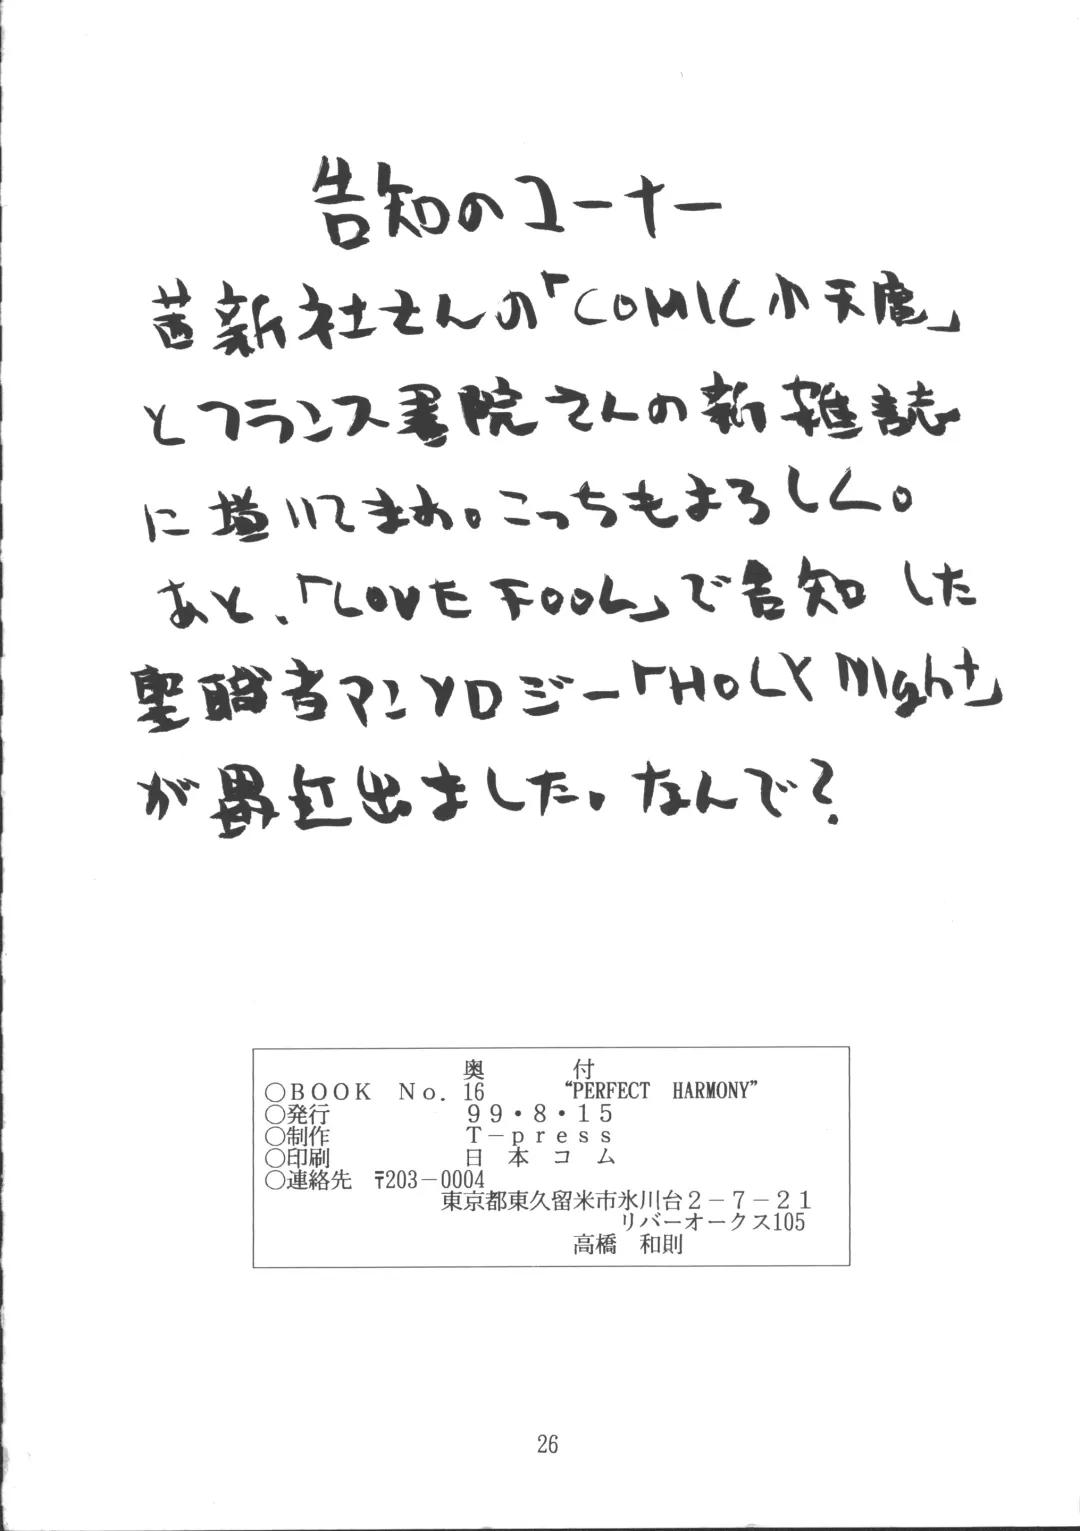 告知のコーナー
茜新社さんの「COMIC小天魔」
とフランス書院さんの新雑誌
に描いてまあ。こっちもよろしく。
あと、「LOVE FOOL」で告知した
聖職者アンソロジー「HOLY NIght」
が最近出ました。なんで?
奥 付
○BOOK No. 16 “PERFECT HARMONY”
○発行 99・8・15
○制作 T-press
○印刷 日本コム
○連絡先 〒203-0004
東京都東久留米市氷川台2-7-21
リバーオークス105
高橋 和則
26